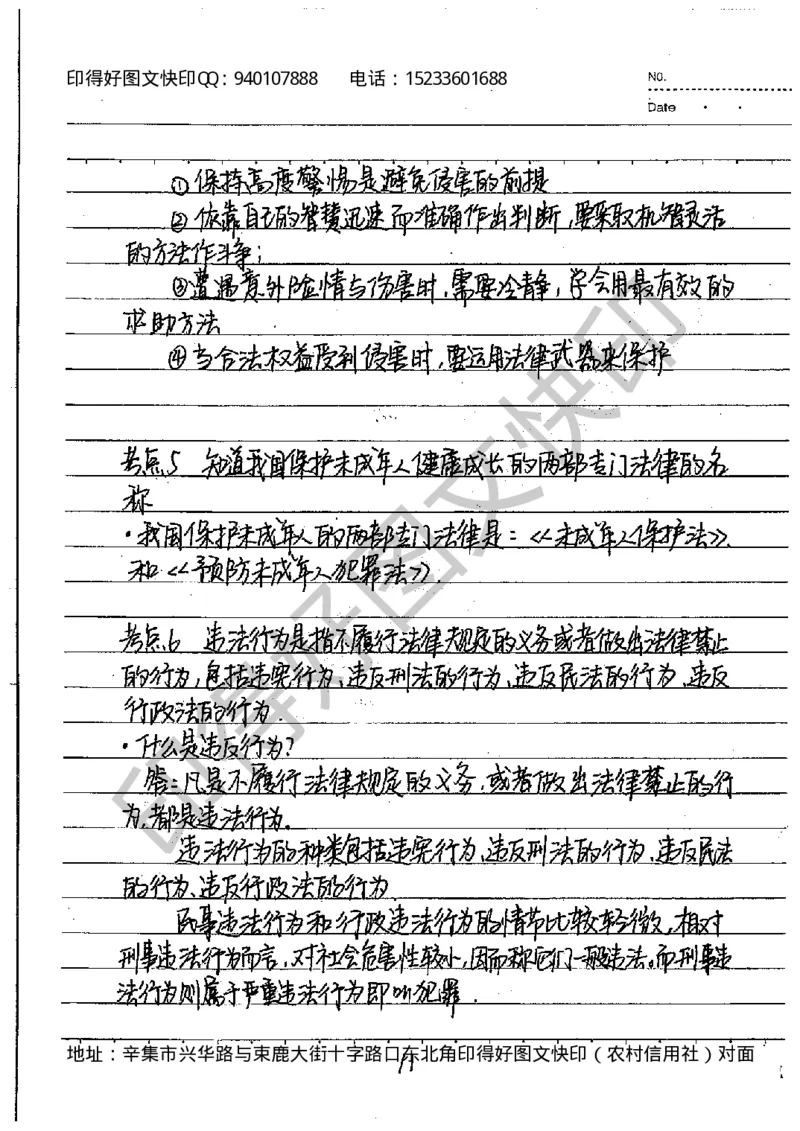 印得好图文快印QQ：940107888 电话：15233601688
No.
Date
①保持高度警惕是避免侵害的前提
②依靠自己的智慧迅速而准确作出判断，要采取机智灵活
的方法作斗争；
③遭遇意外险情与伤害时，需要冷静，学会用最有效的
求助方法
④当合法权益受到侵害时，要运用法律武器来保护
考点5 知道我国保护未成年人健康成长的两部专门法律的名
称
·我国保护未成年人的两部专门法律是：《未成年人保护法》、
和《预防未成年人犯罪法》.
考点6 违法行为是指不履行法律规定的义务或者做出法律禁止
的行为，包括违宪行为、违反刑法的行为、违反民法的行为、违反
行政法的行为.
·什么是违反行为？
答：凡是不履行法律规定的义务，或者做出法律禁止的行
为，都是违法行为.
违法行为的种类包括违宪行为、违反刑法的行为、违反民法
的行为、违反行政法的行为
民事违法行为和行政违法行为的情节比较轻微，相对
刑事违法行为而言，对社会危害性较小，因而称它们一般违法。而刑事违
法行为则属于严重违法行为即叫犯罪.
地址：辛集市兴华路与束鹿大街十字路口东北角印得好图文快印（农村信用社）对面
印得好图文快印